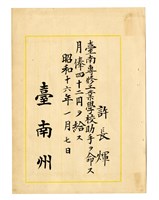 許長輝
臺南專修工業學校助手ヲ命ス
月俸四十二圓ヲ給ス
昭和十六年一月七日
臺南州